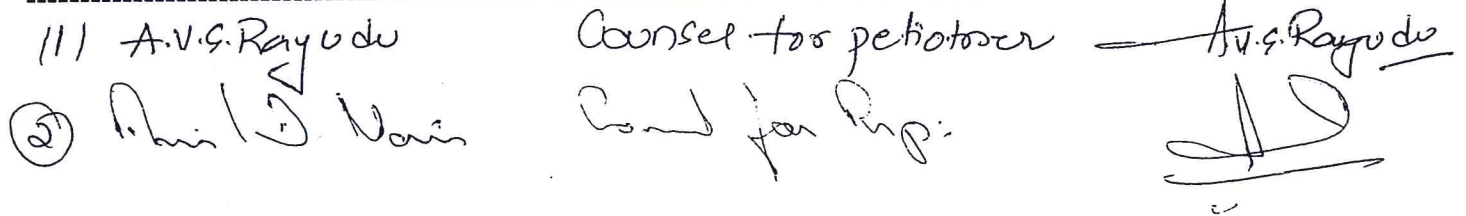 111 A.V.S. Rayudu Counsel for petiotnoer A.V.S. Rayudu
② D. Nair Counl for Resp: